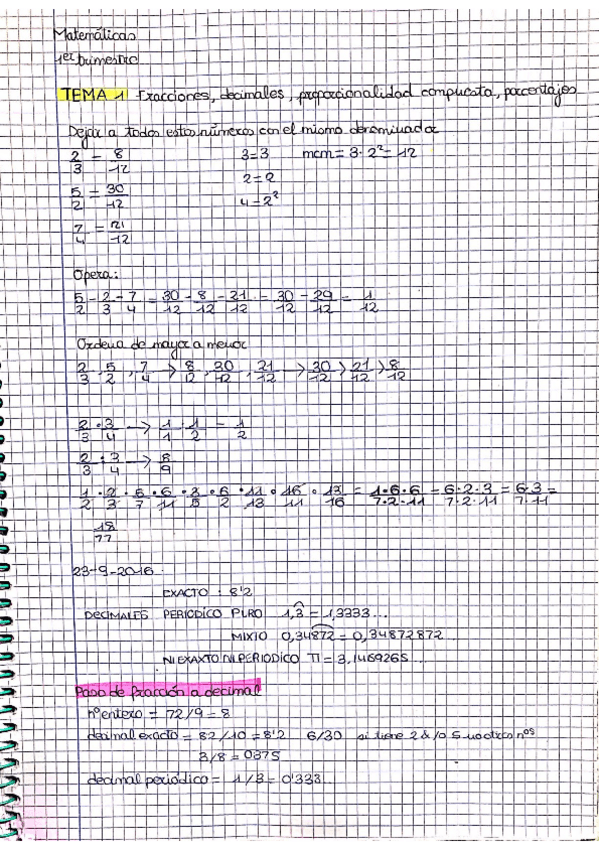 Matemáticas
1er trimestre
TEMA 1 Fracciones, decimales, proporcionalidad compuesta, porcentajes
Dejar a todos estos números con el mismo denominador
2/3 = 8/12 3=3 mcm= 3·2²=12
2=2
5/2 = 30/12
4=2²
7/4 = 21/12
Opera:
5/2 - 2/3 - 7/4 = 30/12 - 8/12 - 21/12 = 30/12 - 29/12 = 1/12
Ordena de mayor a menor
2/3, 5/2, 7/4 → 8/12, 30/12, 21/12 → 30/12 > 21/12 > 8/12
2/3 · 3/4 → 1/1 · 1/2 = 1/2
2/3 : 3/4 → 8/9
= 1·6·6/7·2·11 = 6·2·3/7·2·11 = 6·3/7·11 =
18/77
23-9-2016
EXACTO: 8'2
DECIMALES PERIODICO PURO 1,3̂ = 1,3333...
MIXTO 0,34872 = 0,34872872...
NI EXAXTO NI PERIODICO π = 3,1469265...
Paso de fracción a decimal
nº entero = 72/9 = 8
decimal exacto = 82/10 = 8'2 6/30 si tiene 2 &/o 5 no otros nºs
3/8 = 0375
decimal periódico = 1/3 = 0'333...